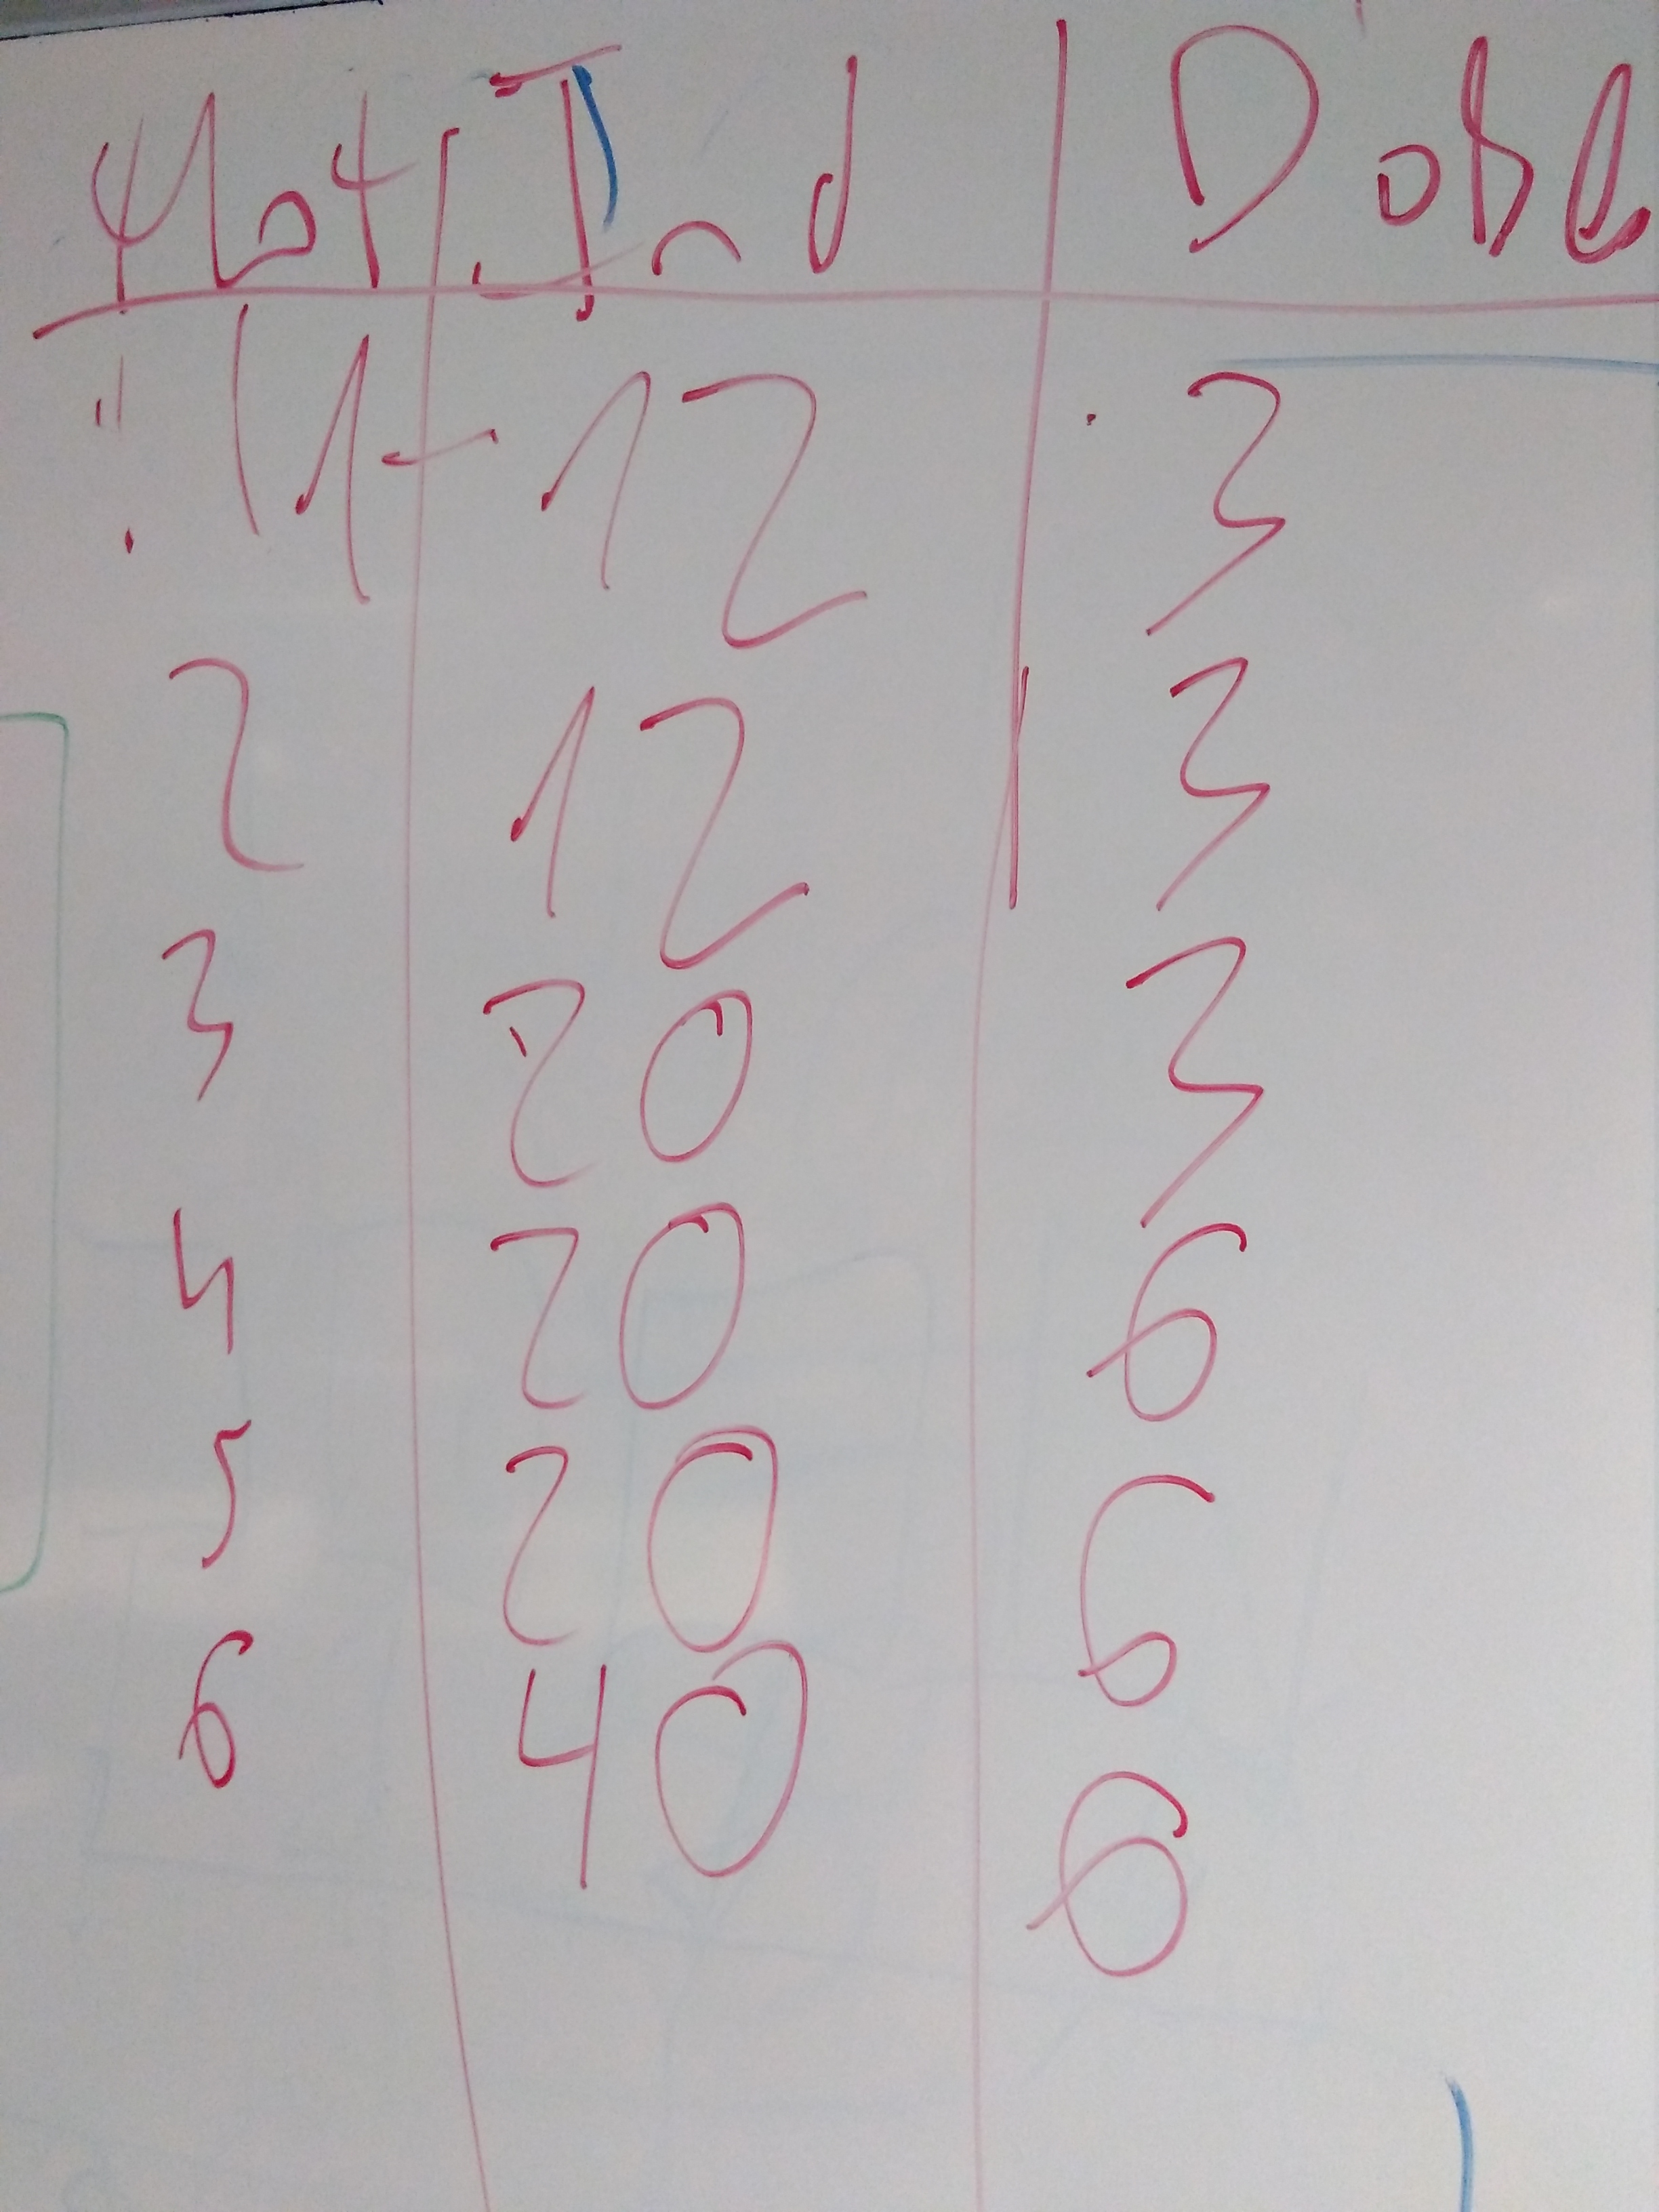 Hat Ind Doble
1 12 3
2 12 3
3 20 3
4 20 6
5 20 6
6 40 6